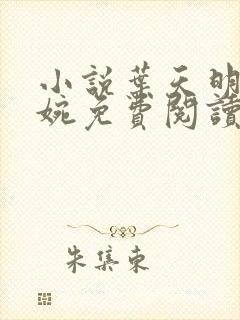 小說葉天明
婉免費閱讀
朱集東